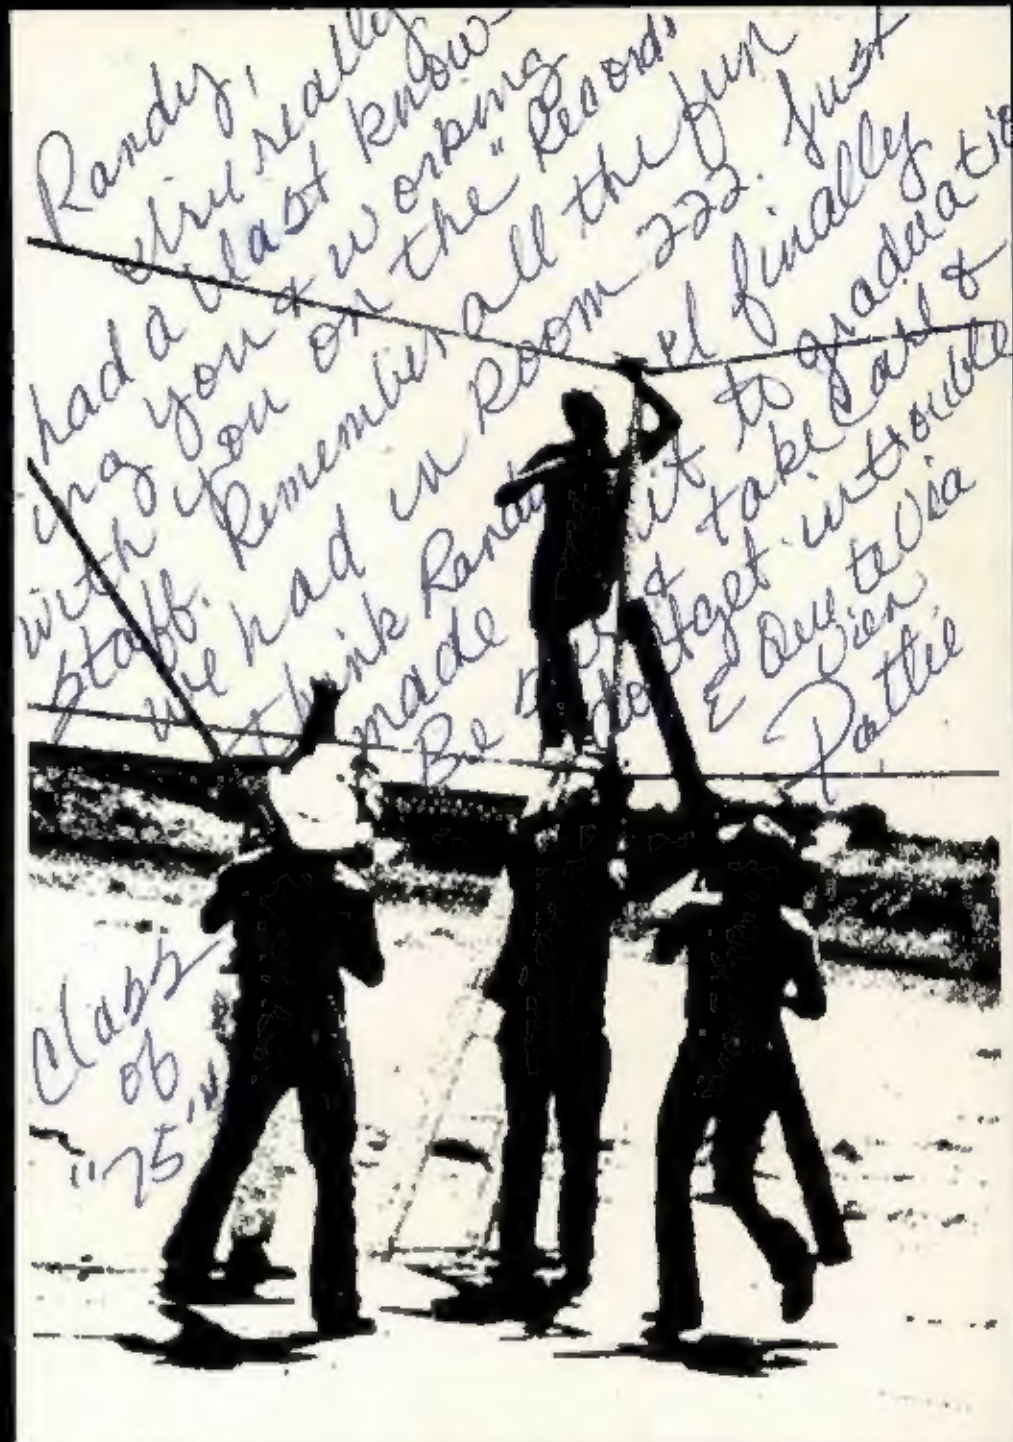 Randy,
I've really
had a blast know-
ing you & working
with you on the "Record"
staff. Remember all the fun
we had in Room 222. Just
think Randy we'll finally
made it to graduatio
Be & take care &
don't get in trouble
Que te Via
Vien
Pattie
Class
of
"75"